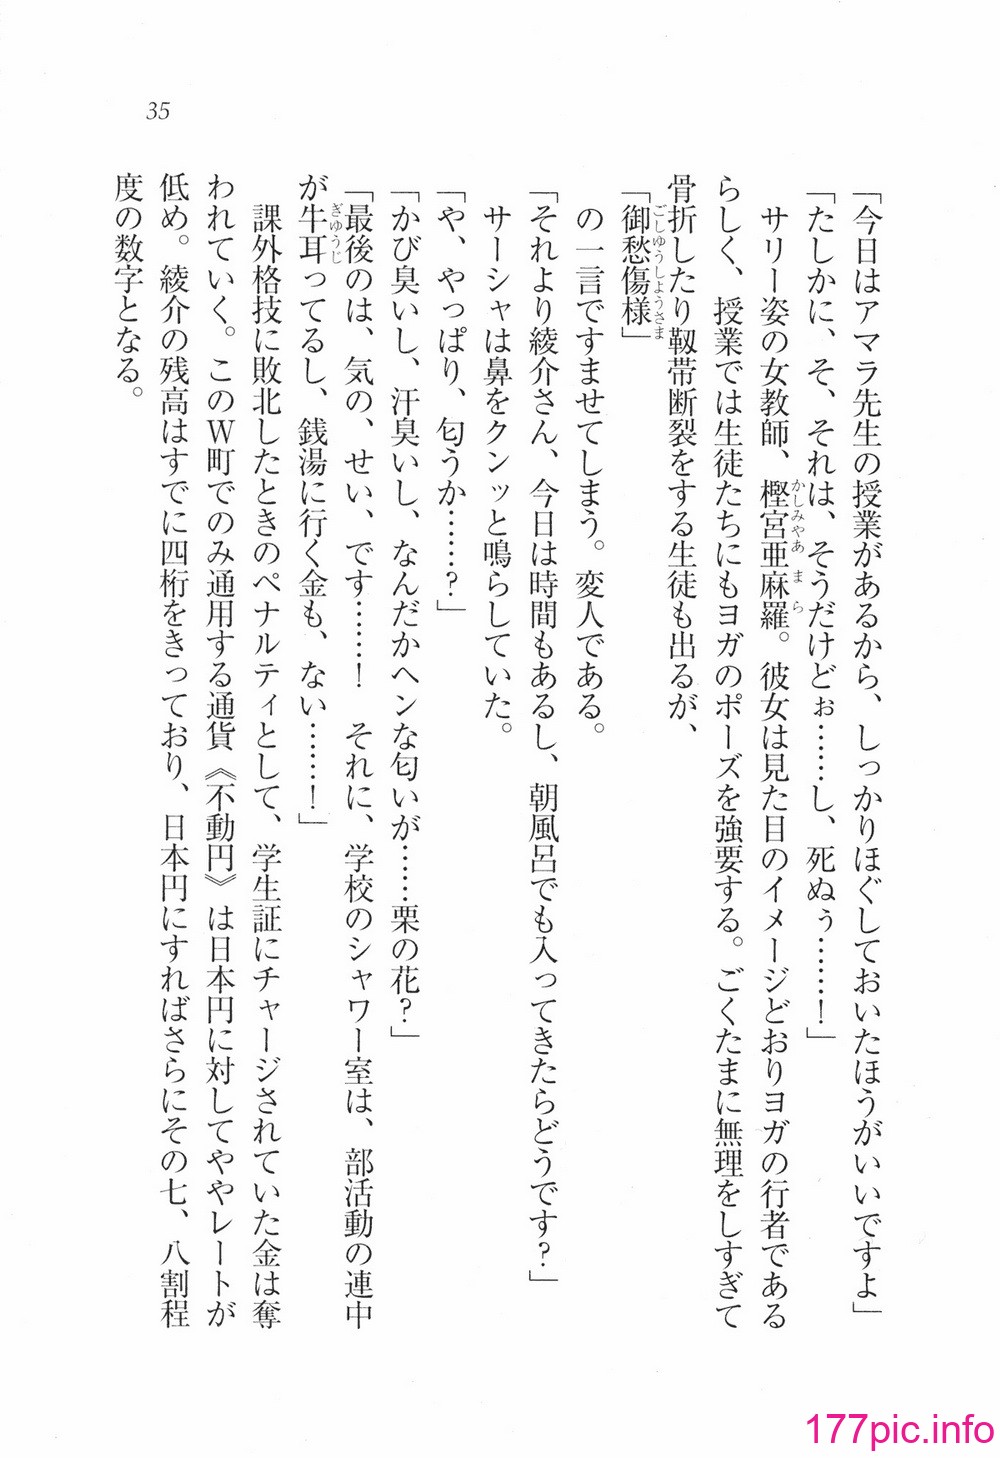 35
「今日はアマラ先生の授業があるから、しっかりほぐしておいたほうがいいですよ」
「たしかに、そ、それは、そうだけどぉ……し、死ぬぅ……！」
サリー姿の女教師、樫宮亜麻羅。彼女は見た目のイメージどおりヨガの行者である
かしみやあまら
らしく、授業では生徒たちにもヨガのポーズを強要する。ごくたまに無理をしすぎて
骨折したり靱帯断裂をする生徒も出るが、
「御愁傷様」
ごしゆうしようさま
の一言ですませてしまう。変人である。
「それより綾介さん、今日は時間もあるし、朝風呂でも入ってきたらどうです？」
サーシャは鼻をクンッと鳴らしていた。
「や、やっぱり、匂うか……？」
「かび臭いし、汗臭いし、なんだかヘンな匂いが……栗の花？」
「最後のは、気の、せい、です……！　それに、学校のシャワー室は、部活動の連中
が牛耳ってるし、銭湯に行く金も、ない……！」
ぎゆうじ
課外格技に敗北したときのペナルティとして、学生証にチャージされていた金は奪
われていく。このW町でのみ通用する通貨《不動円》は日本円に対してややレートが
低め。綾介の残高はすでに四桁をきっており、日本円にすればさらにその七、八割程
度の数字となる。
177pic.info